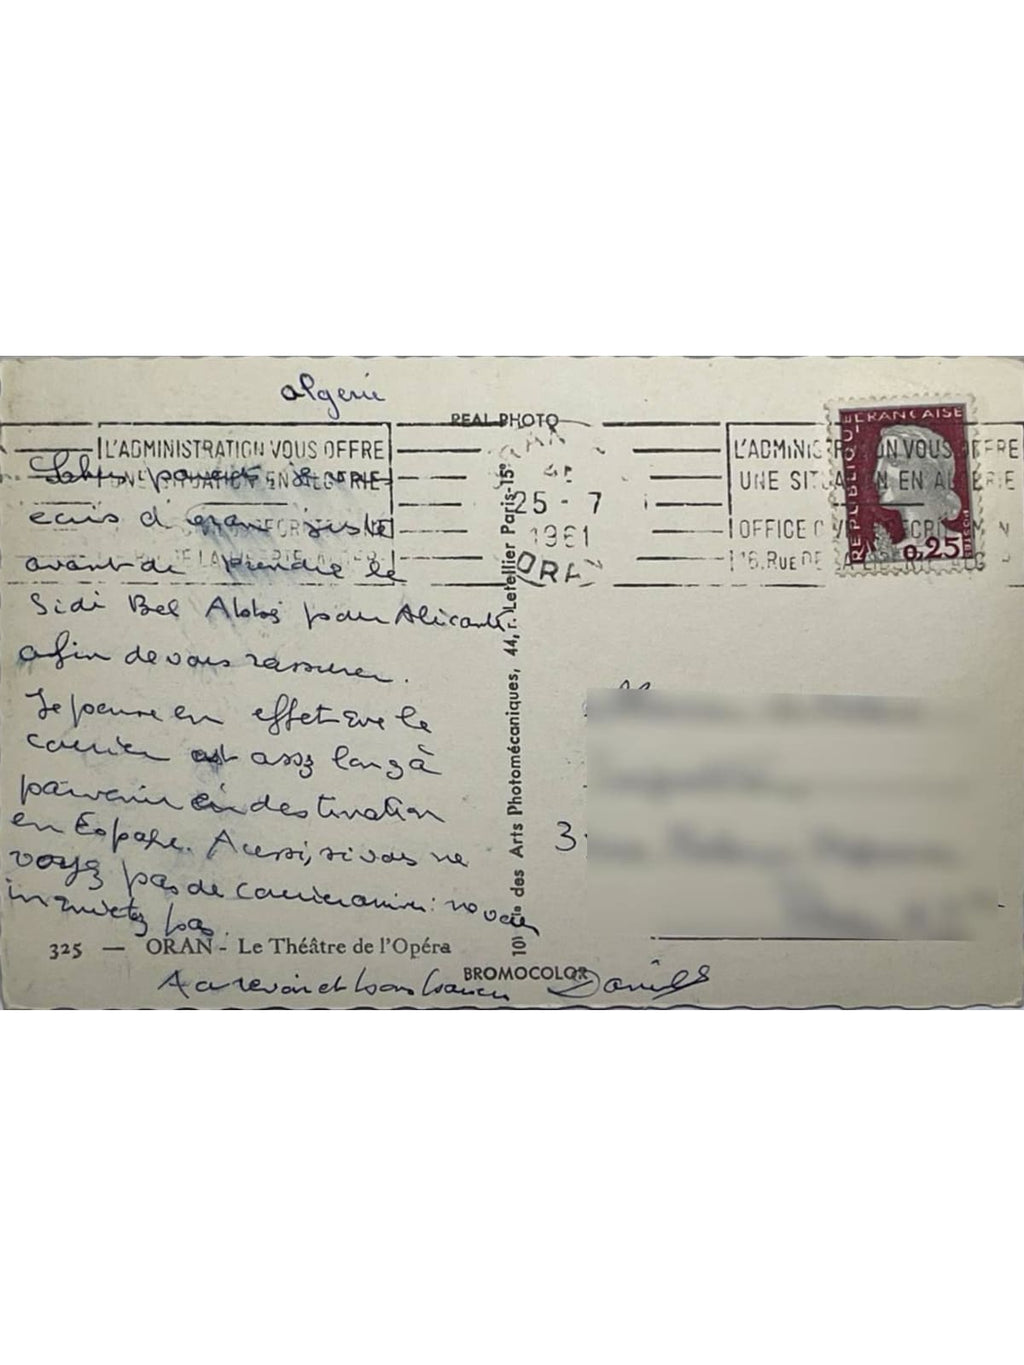 algerie
REAL PHOTO
L'ADMINISTRATION VOUS OFFRE
UNE SITUATION EN ALGERIE
25 - 7
1961
ORAN
L'ADMINISTRATION VOUS OFFRE
UNE SITUATION EN ALGERIE
OFFICE
RUE DE
REPUBLIQUE FRANCAISE
0,25
je vous
ecris d'oran juste
avant de prendre le
Sidi Bel Abbès pour Alicante
afin de vous rassurer.
Je pense en effet que le
courrier est assez long à
parvenir en destination
en Espagne. Aussi, si vous ne
voyez pas de courrier
inquietez pas.
3
des Arts Photomécaniques, 44, r. Letellier Paris-15e
325 — ORAN - Le Théâtre de l'Opéra
BROMOCOLOR
Au revoir et bons baisers